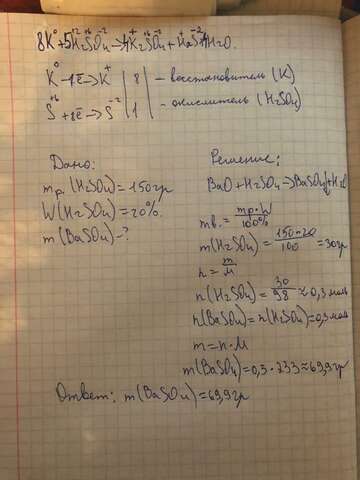 8K⁰+5H₂⁺²S⁺⁶O₄⁻²→4K₂⁺S⁺⁶O₄⁻²+H₂⁺S⁻²+4H₂O.
K⁰-1e̅→K⁺ | 8 | - восстановитель (K)
S⁺⁶+8e̅→S⁻² | 1 | - окислитель (H₂SO₄)
Дано:
mр.(H₂SO₄)=150гр
W(H₂SO₄)=20%.
m(BaSO₄)-?
Решение:
BaO+H₂SO₄→BaSO₄↓+H₂O
mв.=mр·W/100%
m(H₂SO₄)=150·20/100=30гр
n=m/M
n(H₂SO₄)=30/98≈0,3 моль
n(BaSO₄)=n(H₂SO₄)=0,3 моль
m=n·M
m(BaSO₄)=0,3·233≈69,9гр
Ответ: m(BaSO₄)=69,9гр